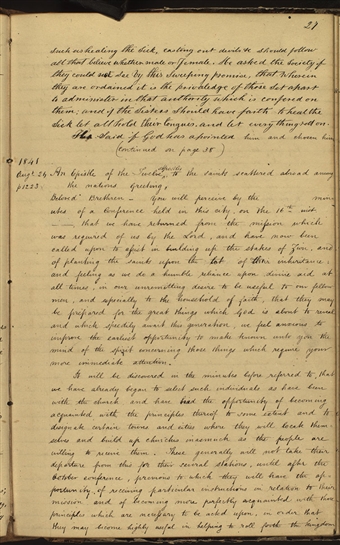 27
such as healing the Sick, casting out devils &c should follow
all that believe whether male or female. He asked the Society if
they could not see by this Sweeping promise, that wherein
they are ordained it is the privilege of those set apart
to administer in that authority which is confered on
them; and if the Sisters should have faith to heal the
Sick let all hold their tongues, and let every thing roll on.
He Said if God has appointed him and chosen him
(continued on page 38)
1841
Augt. 26
p1223
An Epistle of the Twelve, Apostles to the saints scattered abroad among
the nations, Greeting,
Beloved Brethren — You will perceive by the min
utes of a conference held in this city, on the 16th inst
that we have returned from the mission which
was required of us by the Lord, and have now been
called upon to assist in building up the stakes of Zion, and
of planting the saints upon the lot of their inheritance;
and feeling as we do a humble reliance upon divine aid at
all times, in our unremitting desire to be useful to our fellow
men, and especially to the household of faith, that they may
be prepared for the great things which God is about to reveal
and which speedily await this generation, we feel anxious to
improve the earliest opportunity to make known unto you the
mind of the spirit concerning those things which require your
more immediate attention.
It will be discovered in the minutes before referred to, that
we have already began to select such individuals as have been
with the church and have had the opportunity of becoming
acquainted with the principles thereof to some extent and to
designate certain towns and cities where they will locate them-
selves and build up churches inasmuch as the people are
willing to receive them. These generally will not take their
departure from this for their several stations, until after the
October conference, previous to which they will have the op-
portunity of receiving particular instructions in relation to their
mission and of becoming more perfectly acquainted with those
principles which are necessary to be acted upon, in order that
they may become highly useful in helping to roll forth the kingdom